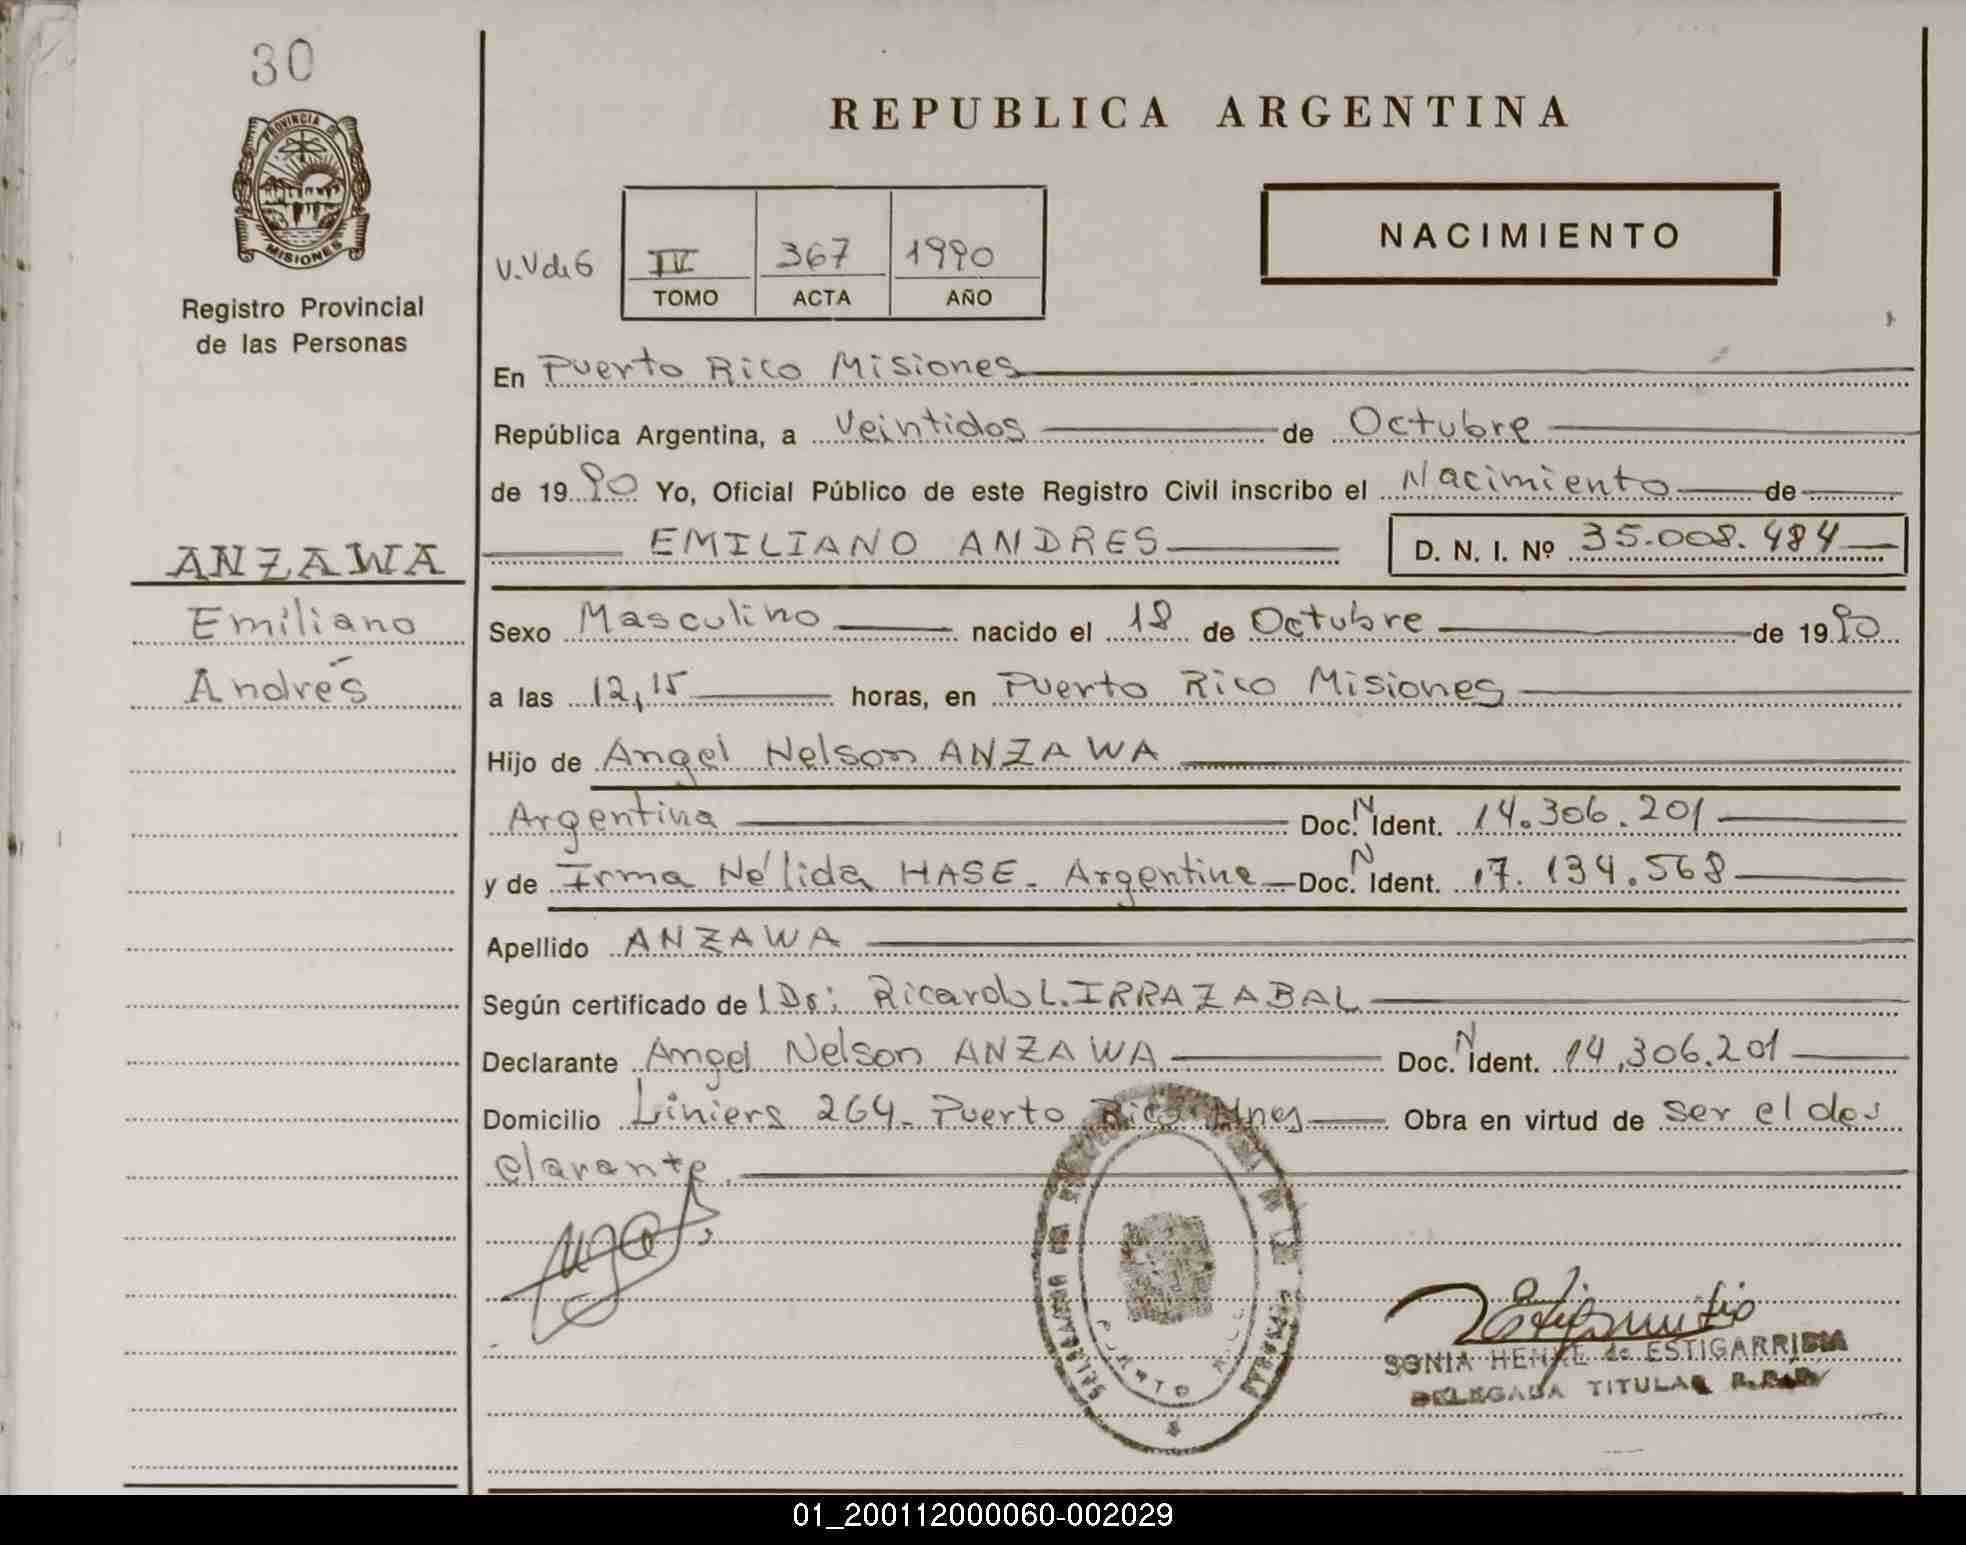 30
PROVINCIA DE
MISIONES
Registro Provincial
de las Personas
REPUBLICA ARGENTINA
NACIMIENTO
IV 367 1990
TOMO ACTA AÑO
En Puerto Rico Misiones
República Argentina, a Veintidos de Octubre
de 1990 Yo, Oficial Público de este Registro Civil inscribo el Nacimiento de
EMILIANO ANDRES D. N. I. Nº 35.008.484
ANZAWA
Emiliano
Andrés
Sexo Masculino nacido el 18 de Octubre de 1990
a las 12,15 horas, en Puerto Rico Misiones
Hijo de Angel Nelson ANZAWA
Argentina Doc. N Ident. 14.306.201
y de Irma Nélida HASE - Argentina Doc. N Ident. 17.134.568
Apellido ANZAWA
Según certificado de Dr: Ricardo L. IRRAZABAL
Declarante Angel Nelson ANZAWA Doc. N Ident. 14.306.201
Domicilio Liniers 264 - Puerto Rico Mnes Obra en virtud de ser el de-
clarante.
PUERTO RICO
SONIA HENKE de ESTIGARRIBIA
DELEGADA TITULAR
01_200112000060-002029